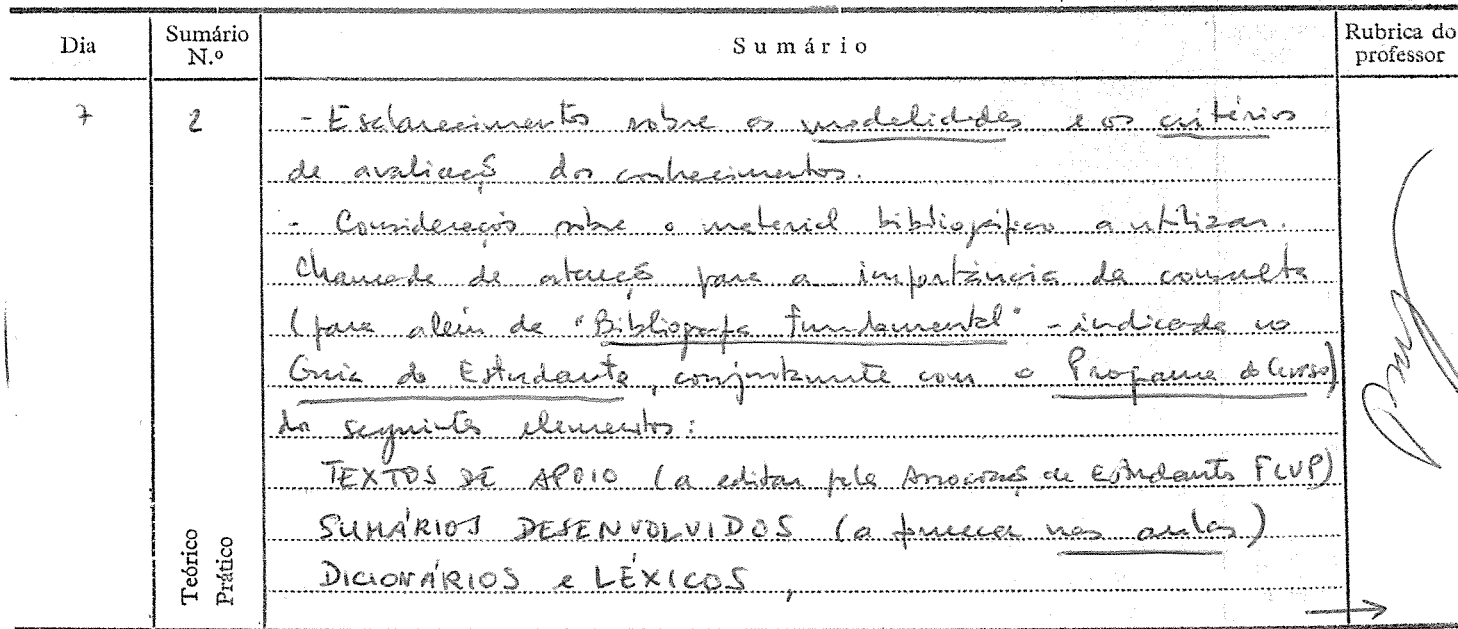 Dia Sumário N.º Sumário Rubrica do professor
7 2 - Esclarecimentos sobre as modalidades e os critérios
de avaliação dos conhecimentos.
- Considerações sobre o material bibliográfico a utilizar.
Chamada de atenção para a importância da consulta
(para além da "Bibliografia fundamental" - indicada no
Guia do Estudante, conjuntamente com o Programa do Curso)
dos seguintes elementos:
TEXTOS DE APOIO (a editar pela Associação de Estudantes FLUP)
SUMÁRIOS DESENVOLVIDOS (a nas aulas)
DICIONÁRIOS e LÉXICOS,
Teórico
Prático